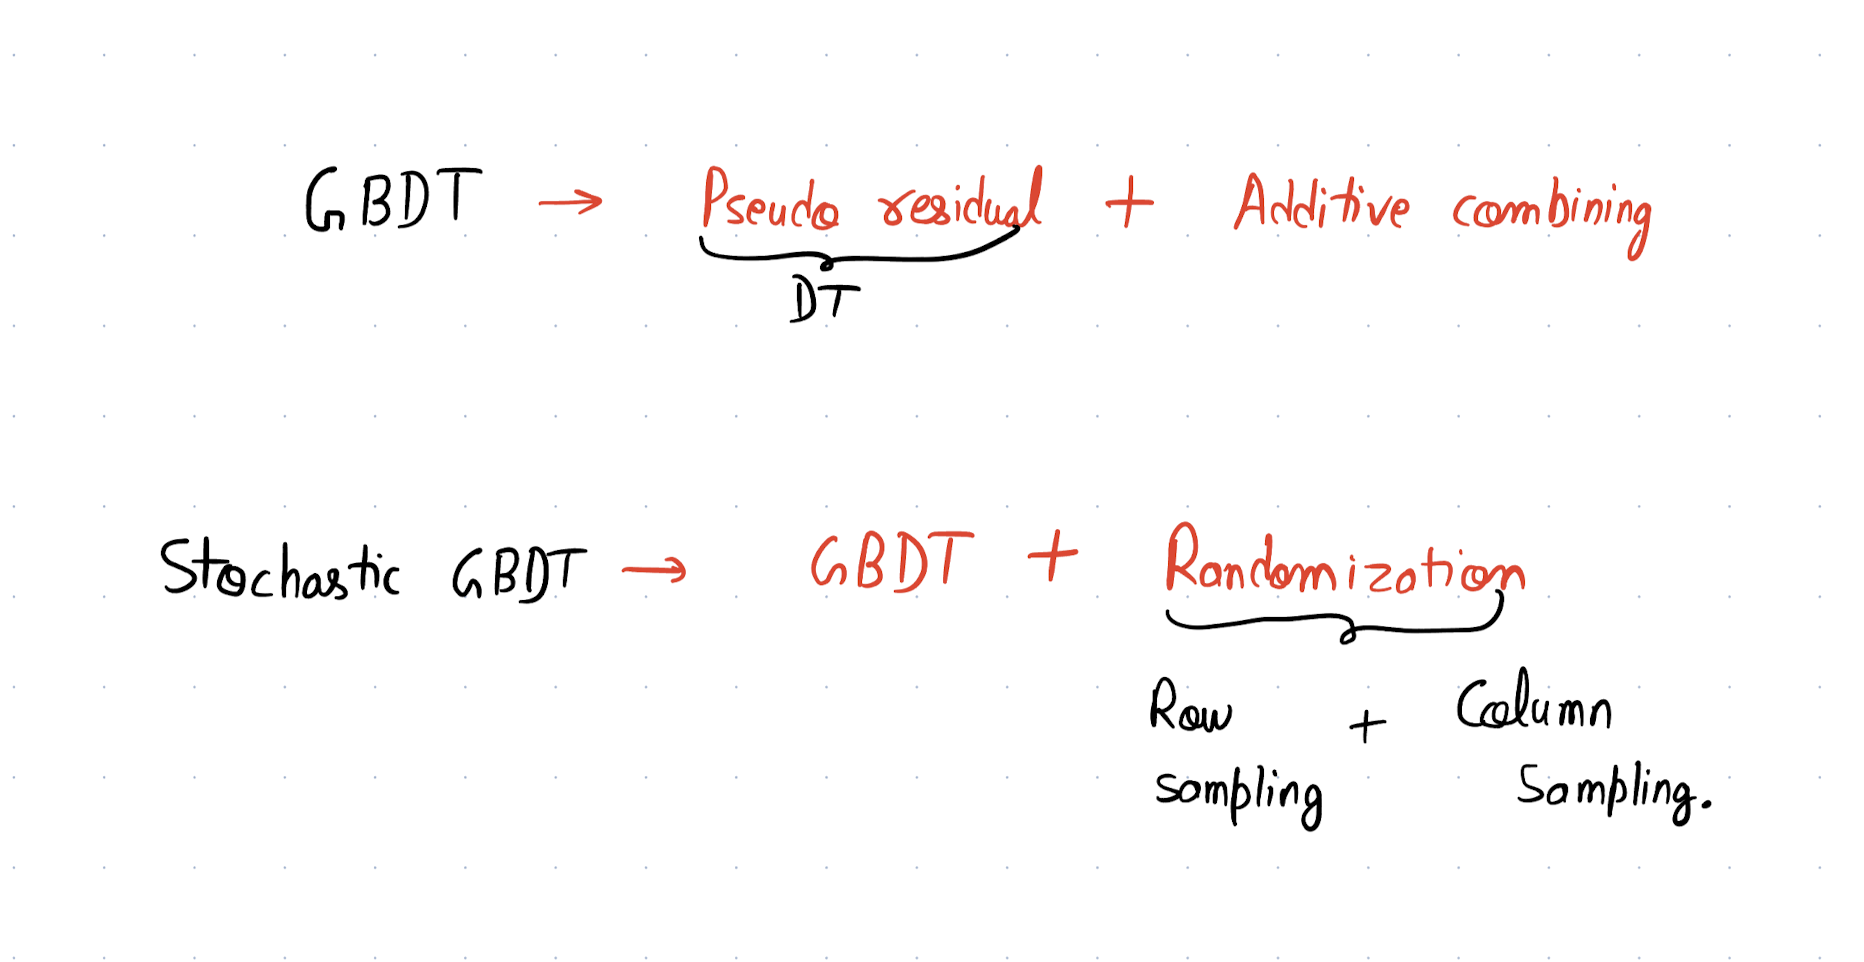 GBDT → Pseudo residual + Additive combining
DT
Stochastic GBDT → GBDT + Randomization
Row + Column
sampling Sampling.